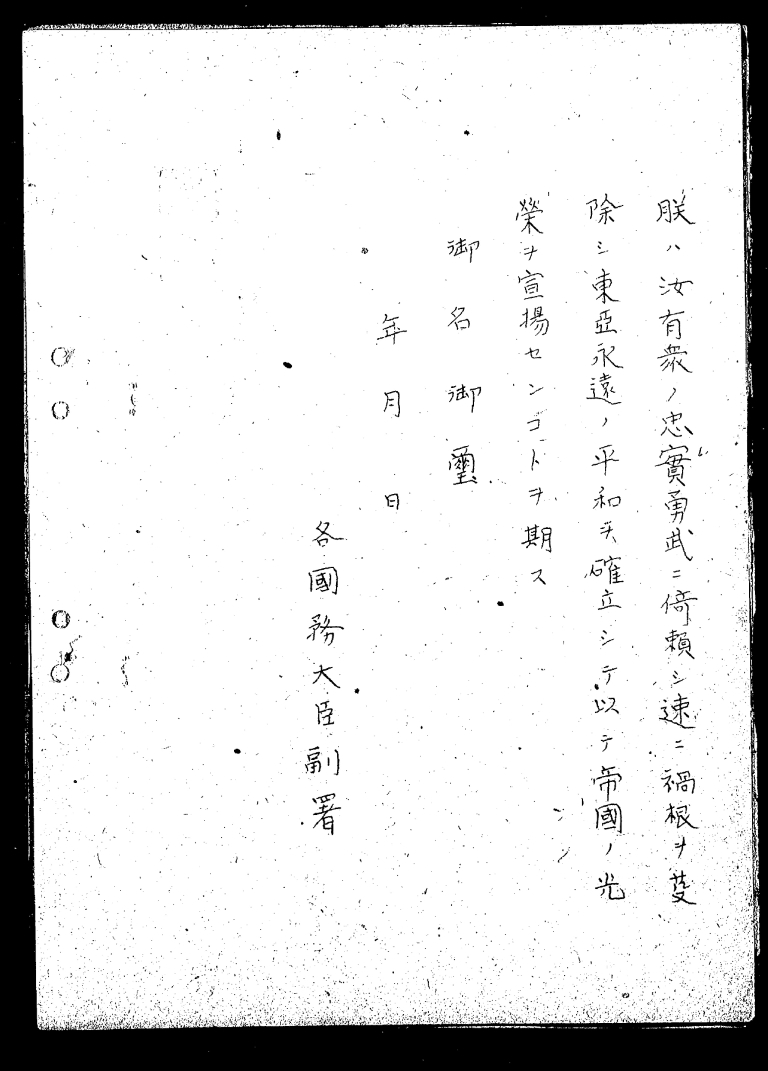 朕ハ汝有衆ノ忠實勇武ニ倚賴シ速ニ禍根ヲ芟
除シ東亞永遠ノ平和ヲ確立シテ以テ帝國ノ光
榮ヲ宣揚センコトヲ期ス
御名御璽
年月日
各國務大臣副署